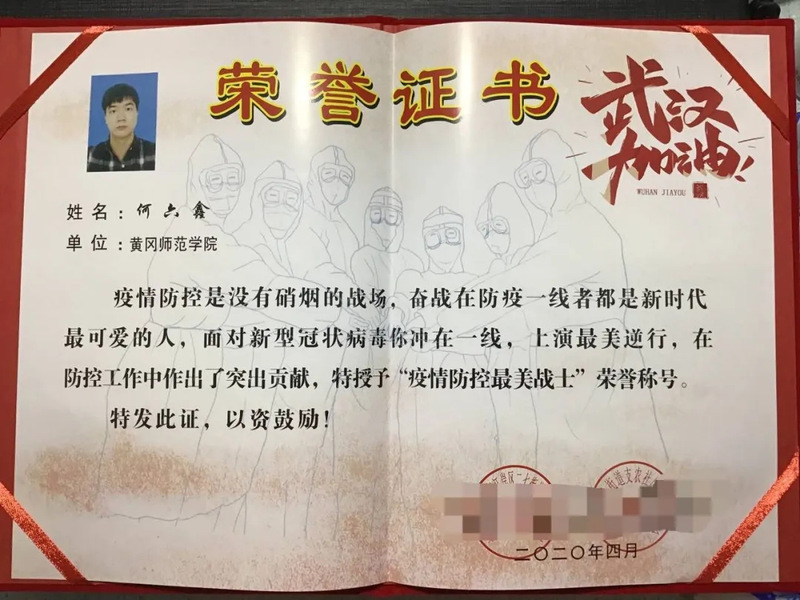 荣誉证书
武汉
加油!
WUHAN JIAYOU
姓名：何六鑫
单位：黄冈师范学院
疫情防控是没有硝烟的战场，奋战在防疫一线者都是新时代
最可爱的人，面对新型冠状病毒你冲在一线，上演最美逆行，在
防控工作中作出了突出贡献，特授予“疫情防控最美战士”荣誉称号。
特发此证，以资鼓励！
二〇二〇年四月